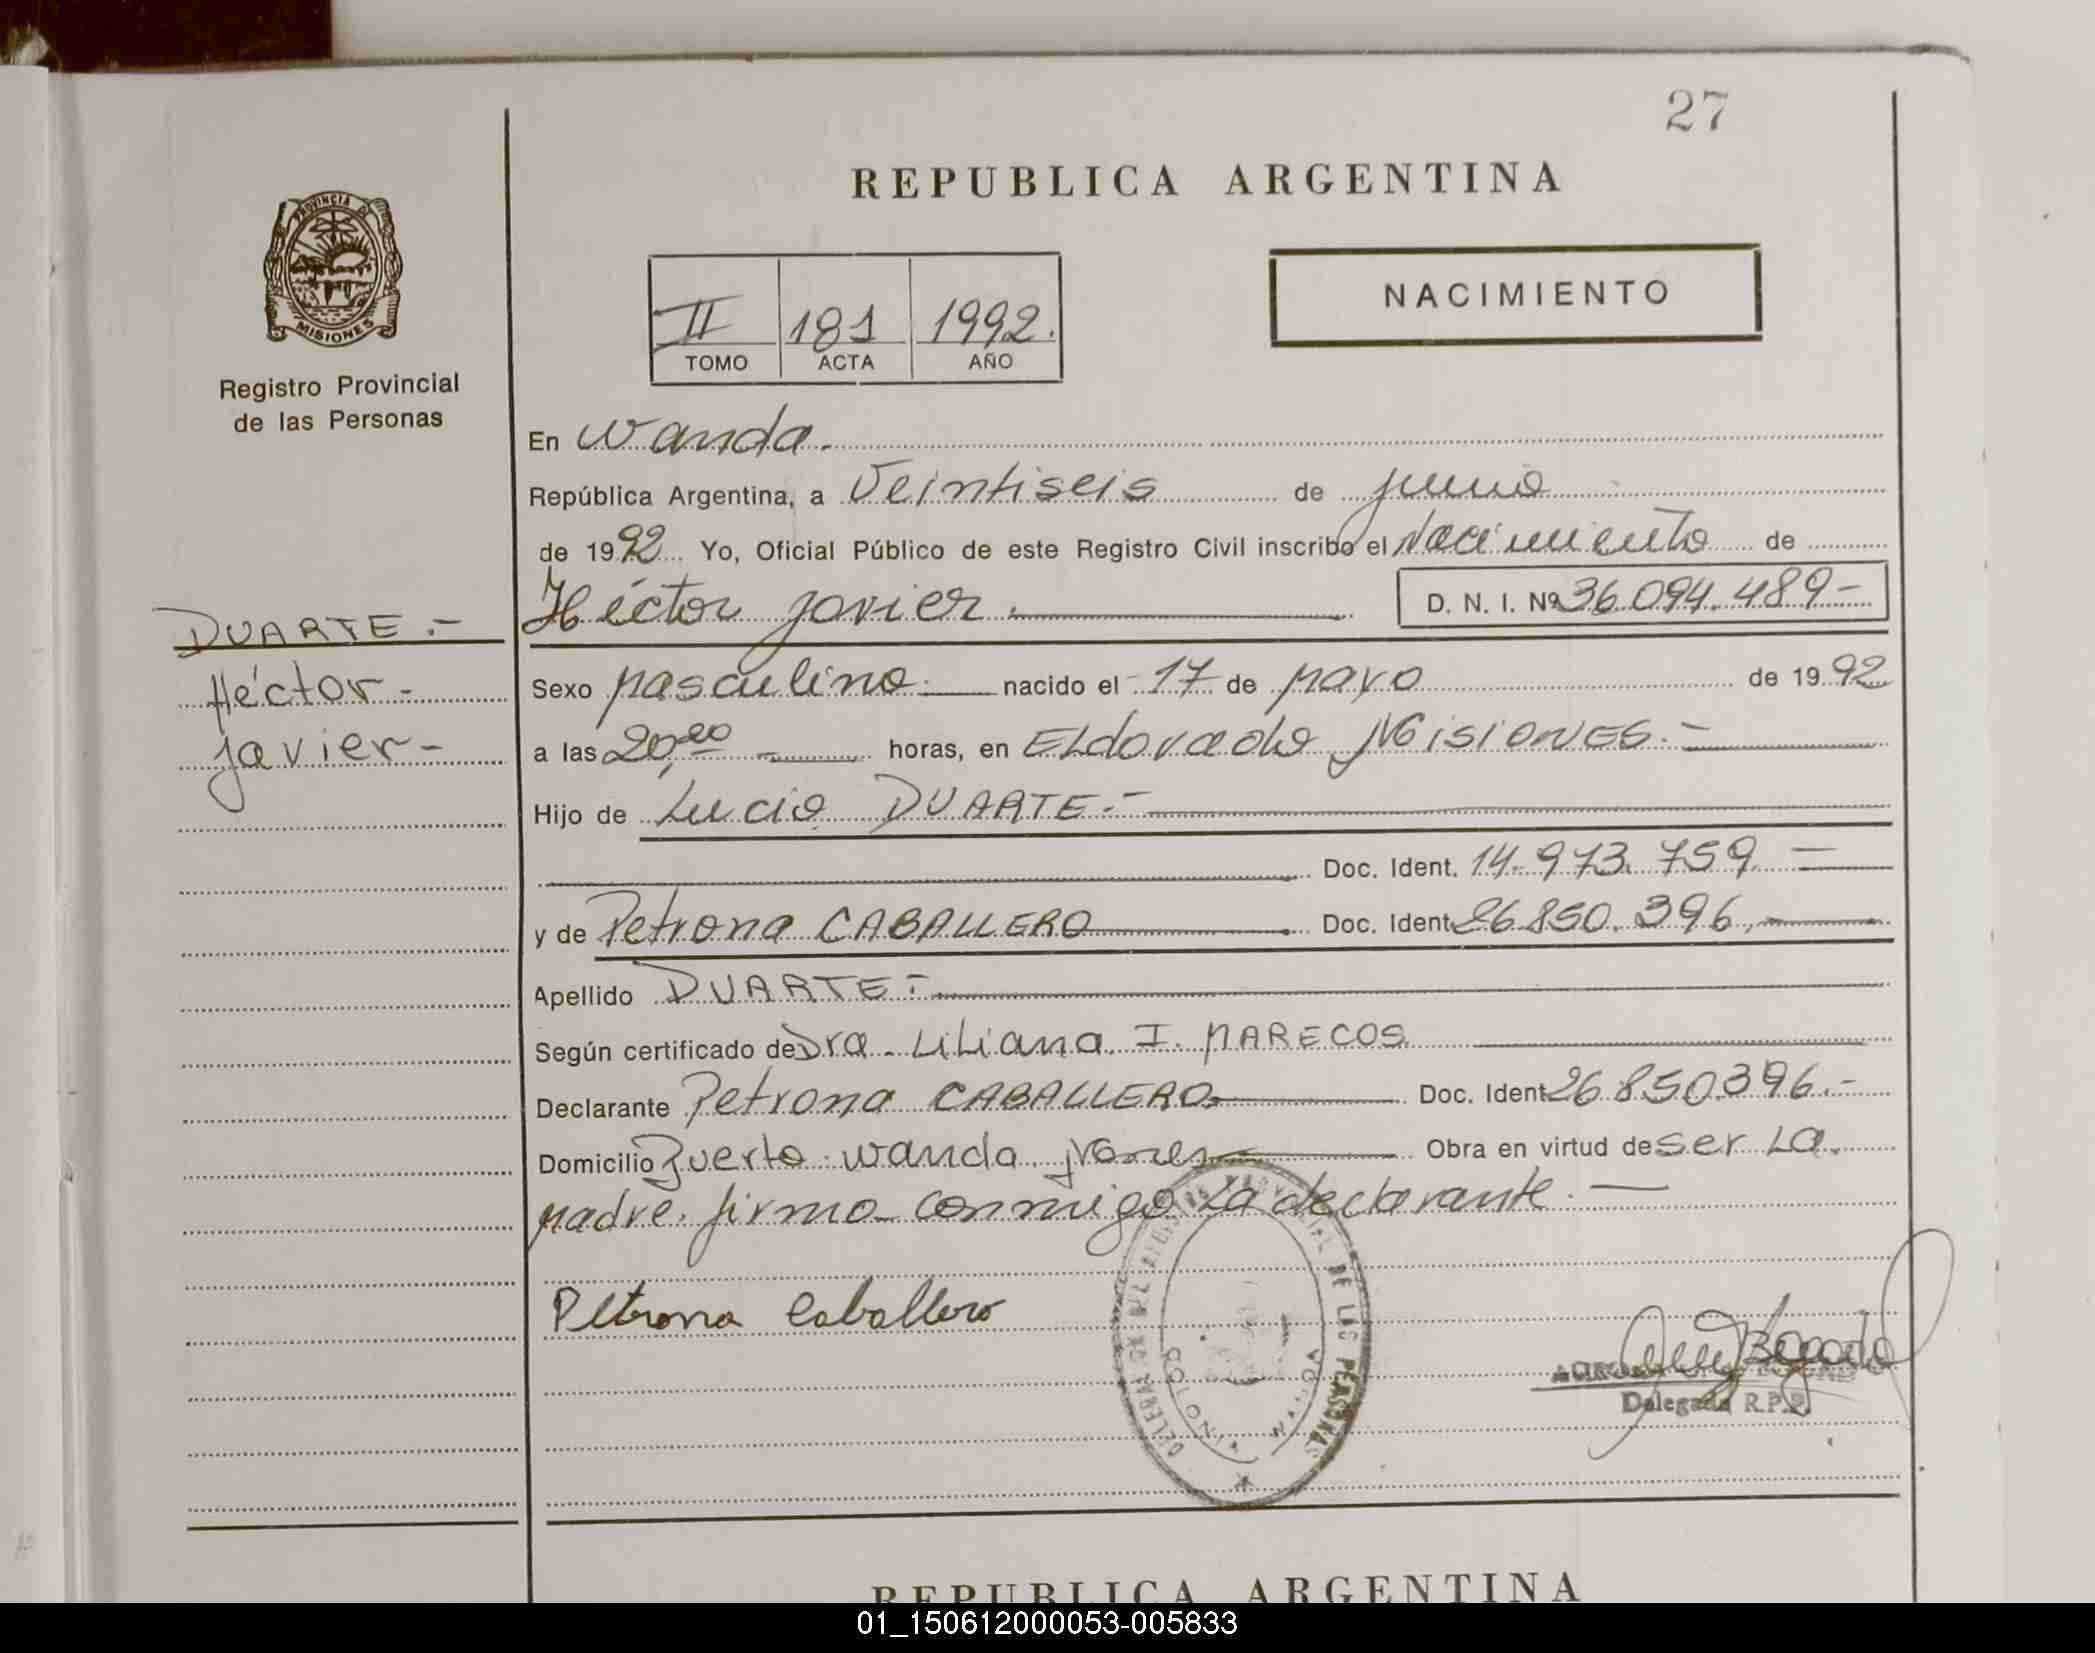 27
REPUBLICA ARGENTINA
PROVINCIA DE
MISIONES
Registro Provincial
de las Personas
NACIMIENTO
II 181 1992.
TOMO ACTA AÑO
En Wanda.
República Argentina, a Veintiseis de junio
de 1992 Yo, Oficial Público de este Registro Civil inscribo el Nacimiento de
Héctor Javier. D. N. I. Nº 36.094.489-
DUARTE.-
Héctor-
Javier-
Sexo Masculino. nacido el 17 de Mayo de 1992
a las 20,20 horas, en ELdorado Misiones.-
Hijo de Lucio DUARTE.-
Doc. Ident. 14.973.759.=
y de Petrona CABALLERO Doc. Ident. 26.850.396,-
Apellido DUARTE.-
Según certificado de Dra. Liliana I. MARECOS
Declarante Petrona CABALLERO. Doc. Ident. 26.850.396.-
Domicilio Puerto Wanda Obra en virtud de ser La
Madre. firma conmigo La declarante.-
Petrona Caballero
DE LAS PERSONAS
Delegada R.P.P.
REPUBLICA ARGENTINA
01_150612000053-005833